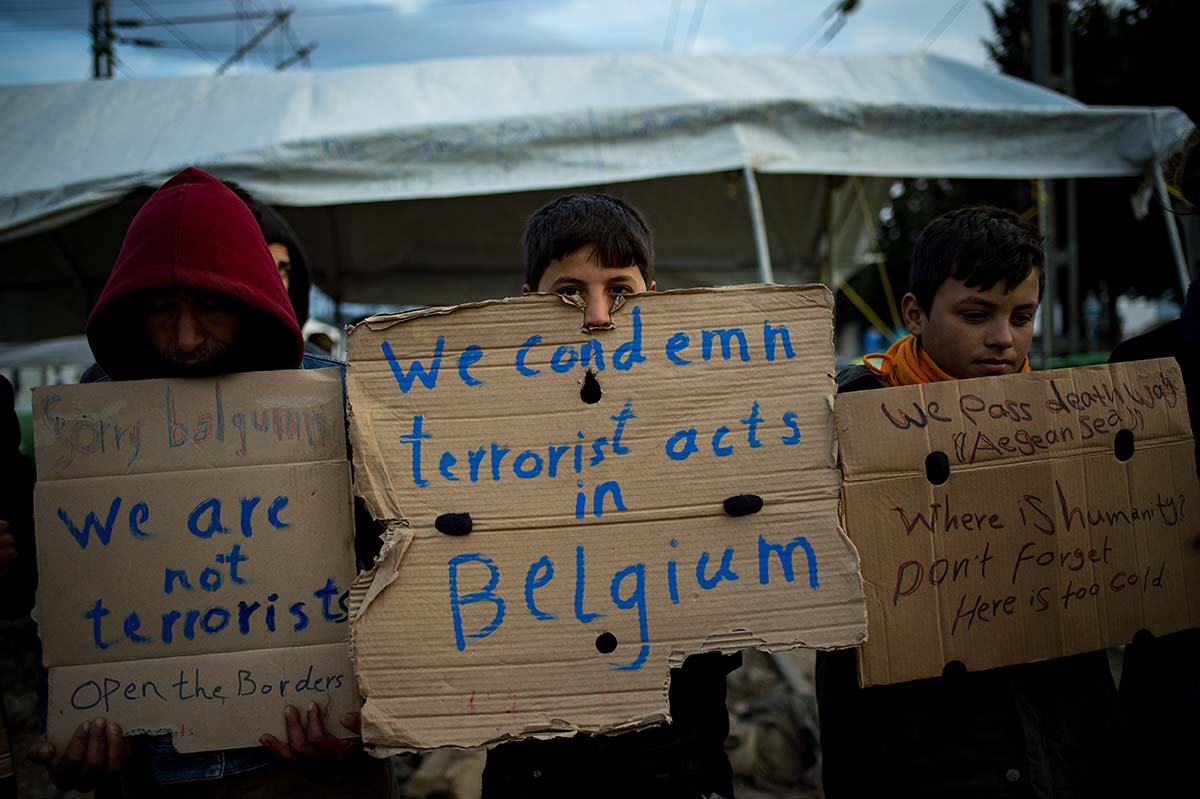 Sorry balgumm
We are
not
terrorists
Open the Borders
We condemn
terrorist acts
in
Belgium
We Pass death way
((Aegean Sea))
Where is humanity?
Don't Forget
Here is too cold